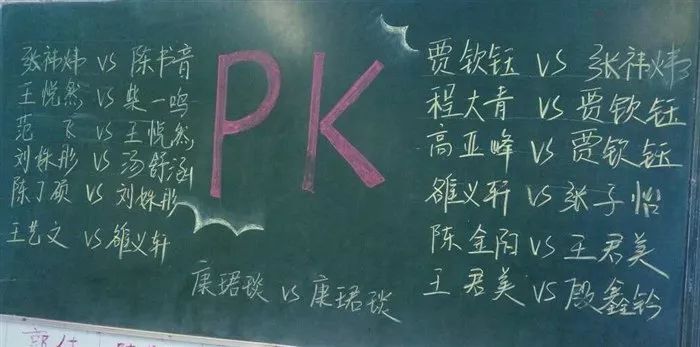 张祎炜 VS 陈书音
王悦然 VS 柴一鸣
范飞 VS 王悦然
刘姝彤 VS 汤舒涵
陈丁硕 VS 刘姝彤
王艺文 VS 雒义轩
PK
贾钦钰 VS 张祎炜
程大青 VS 贾钦钰
高亚峰 VS 贾钦钰
雒义轩 VS 张子怡
陈金阳 VS 王君美
王君美 VS 殷鑫钤
康珺琰 VS 康珺琰